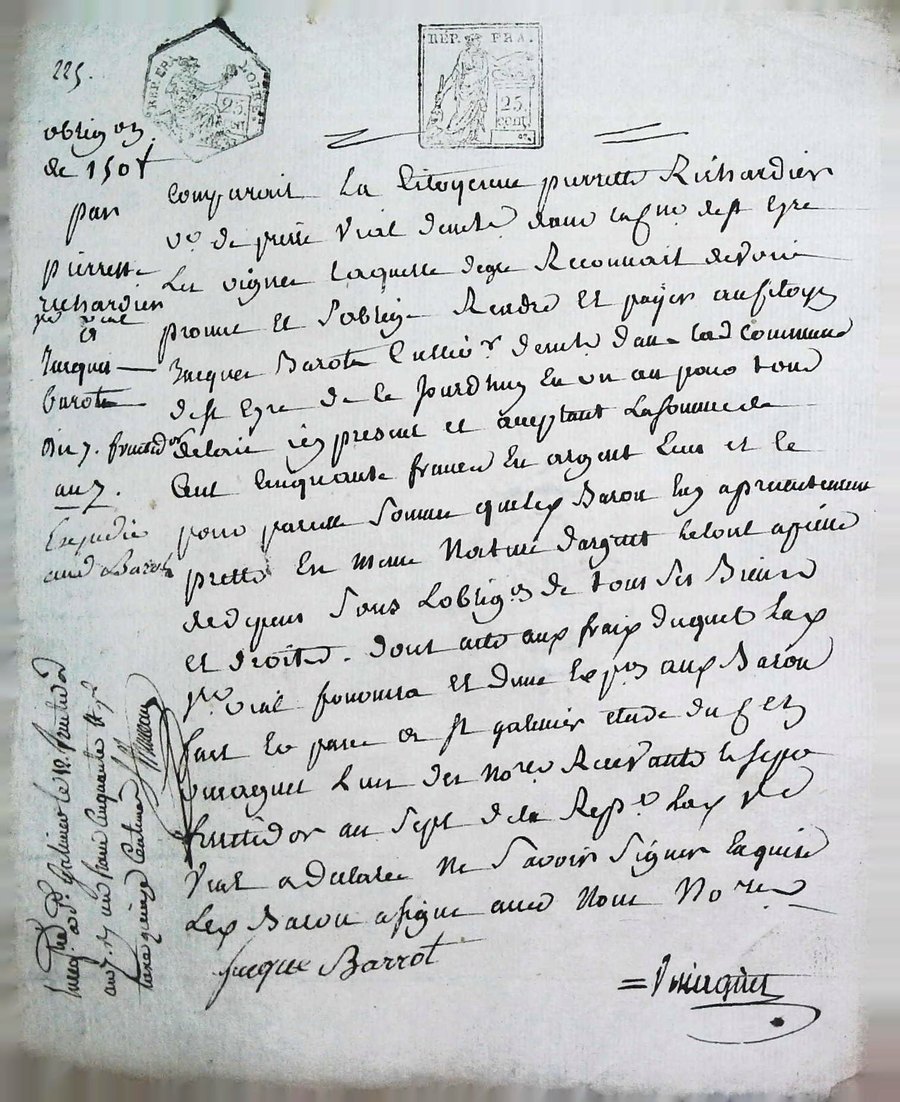 225.
REP. FRA. LOIRE.
25
REP. FRA.
25
cent
obligon
de 150 f
par
pierrette
richardier
ve vial
a
Jacques
barot
du 7. fructidor
an 7.
Expediée
aud Barot
comparoit La Citoyenne pierrette Richardier
ve. de pierre Vial demte. dans la Cne de st Eyre
Les vignes Laquelle de gré Reconnait devoir
promet et S'oblige Rendre Et payer au Citoyen
Jacques Barot demte. dans lad Commune
de st Eyre de ce Jourdhuy En un an pour tout
delait icy present et aceptant La somme de
Cent Cinquante francs En argent Lun et le
pour pareille Somme que led Barou luy a presentement
pretté En meme Nature d'argent le tout a peine
de depens Sous L'obligon de tous Ses Biens
et droits. dont acte aux fraix duquel La
ve. vial fournira Et Exp on aux Barou
fait Et passé a st galmier etude du Cen
Lun des Nores Recevants le sept
fructidor an Sept de la Repe. La ve
Vial a declaré Ne Savoir Signer Enquise
Le Barou a signé avec Nous Nores
Jacque Barrot
a St Galmier le 12 fructidor
an 7. un franc cinquante
taxe quinze Centimes